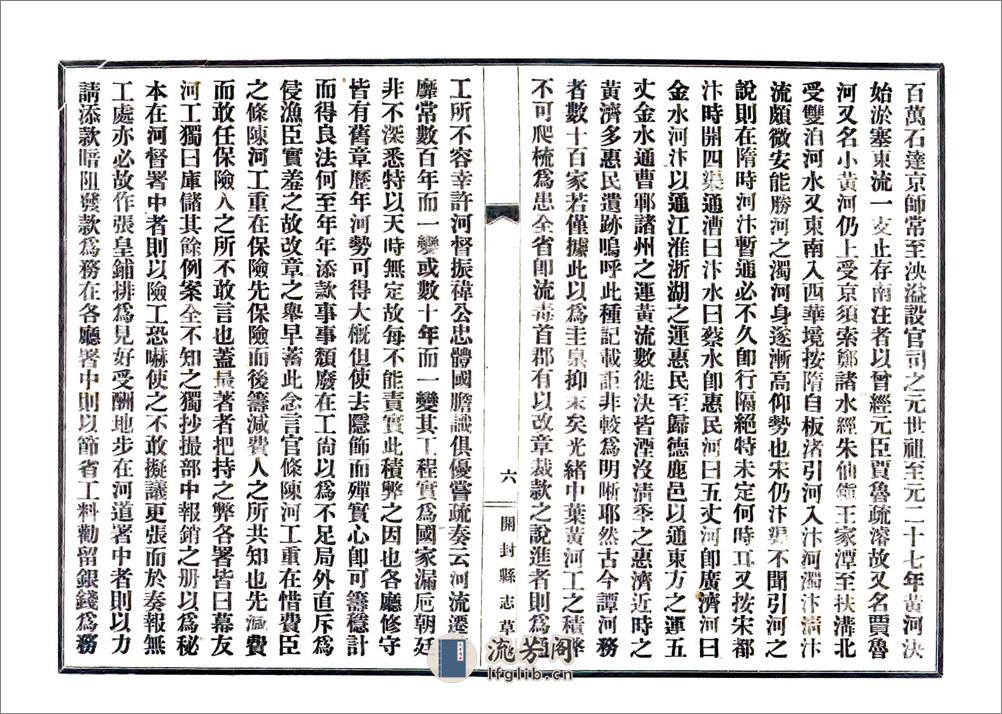 百萬石達京師常至泱溢設官司之元世祖至元二十七年黃河決
始淤塞東流一支止存南注者以曾經元臣賈魯疏濬故又名賈魯
河又名小黃河仍上受京須索鄭諸水經朱仙鎮王家潭至扶溝北
受雙洎河水又東南入西華境按隋自板渚引河入汴河濁汴清汴
流頗微安能勝河之濁河身遂漸高仰勢也宋仍汴渠不聞引河之
說則在隋時河汴暫通必不久卽行隔絕特未定何時耳又按宋都
汴時開四渠通漕曰汴水曰蔡水卽惠民河曰五丈河卽廣濟河曰
金水河汴以通江淮浙湖之運惠民至歸德鹿邑以通東方之運五
丈金水通曹鄆諸州之運黃流數徙決皆湮沒清季之惠濟近時之
黃濟多惠民遺跡嗚呼此種記載詎非較爲明晰耶然古今譚河務
者數十百家若僅據此以爲圭臬抑末矣光緒中葉黃河工之積弊
不可爬梳爲患全省卽流毒首郡有以改章裁款之說進者則爲
工所不容幸許河督振禕公忠體國膽識俱優嘗疏奏云河流遷
靡常數百年而一變或數十年而一變其工程實爲國家漏卮朝廷
非不深悉特以天時無定故每不能責實此積弊之因也各廳修守
皆有舊章歷年河勢可得大槪但使去隱飾而殫實心卽可籌穩計
而得良法何至年年添款事事頹廢在工尙以爲不足局外直斥爲
侵漁臣實羞之故改章之舉早蓄此念言官條陳河工重在惜費臣
之條陳河工重在保險先保險而後籌減費人之所共知也先減費
而敢任保險人之所不敢言也蓋最著者把持之弊各署皆曰幕友
河工獨曰庫儲其餘例案全不知之獨抄撮部中報銷之册以爲秘
本在河督署中者則以險工恐嚇使之不敢擬議更張而於奏報無
工處亦必故作張皇鋪排爲見好受酬地步在河道署中者則以力
請添款暗阻發款爲務在各廳署中則以節省工料勸留銀錢爲務
六
開封縣志草
流芳阁
lfglib.cn